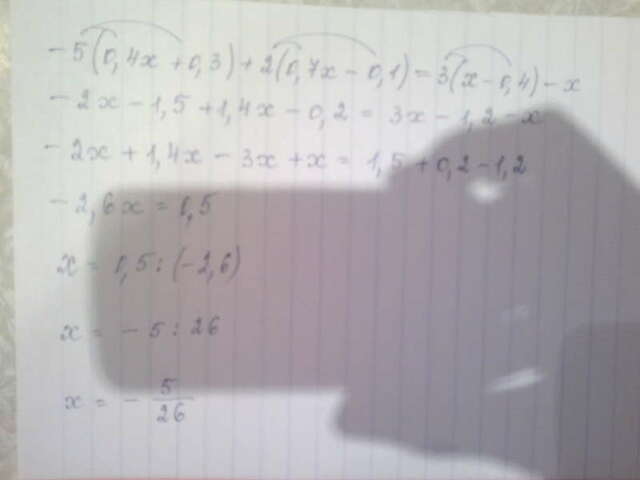 -5(0,4x+0,3)+2(0,7x-0,1)=3(x-0,4)-x
-2x-1,5+1,4x-0,2=3x-1,2-x
-2x+1,4x-3x+x=1,5+0,2-1,2
-2,6x=0,5
x=0,5:(-2,6)
x=-5:26
x=-5/26